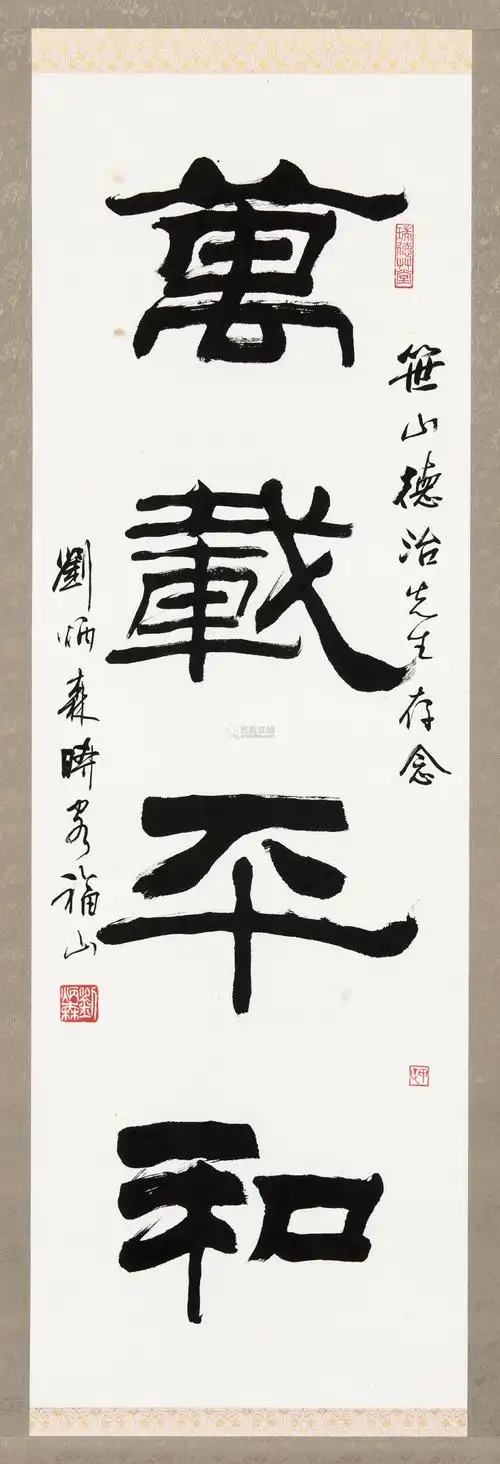 笹山德治先生存念
萬載平和
劉炳森時客福山
劉炳森